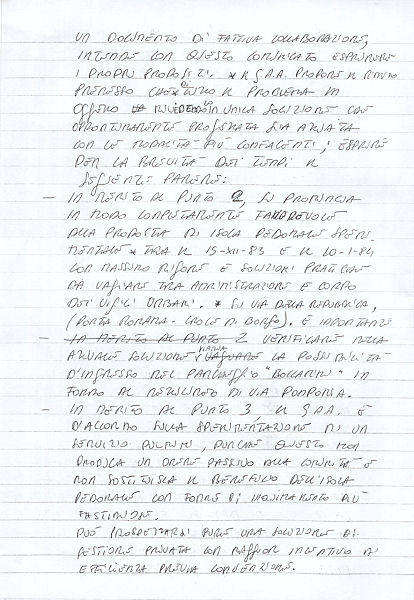 UN DOCUMENTO DI FATTIVA COLLABORAZIONE,
INTENDE CON QUESTO COMUNICATO ESPRIMERE
I PROPRI PROPOSITI. * IL G.A.A. PROPONE IL RINVIO
PREMESSO CHE IL PROBLEMA
UNICA SOLUZIONE CHE
OPPORTUNAMENTE PROGETTATA SIA ATTUATA
CON LE MODALITÀ PIÙ CONFACENTI, ESPRIME
PER LA
SEGUENTE PARERE:
— IN MERITO AL PUNTO 2, SI PRONUNCIA
IN MODO COMPLETAMENTE FAVOREVOLE
ALLA PROPOSTA DI ISOLA PEDONALE SPERI-
MENTALE * TRA IL 15-XII-83 E IL 10-1-84
CON MASSIMO RIGORE E SOLUZIONI PRATICHE
DA VAGLIARE TRA AMMINISTRAZIONE E CORPO
DEI VIGILI URBANI. * SU VIA DELLA REPUBBLICA,
(PORTA ROMANA - CROCE DI BORGO). È IMPORTANTE
— IN MERITO AL PUNTO 2 VERIFICARE NELLA
ATTUALE SOLUZIONE VIARIA VAGLIARE LA POSSIBILITÀ
D'INGRESSO NEL PARCHEGGIO "BOLLARINI" IN
FONDO AL RETTILINEO DI VIA POMPONIA.
— IN MERITO AL PUNTO 3, IL G.A.A. È
D'ACCORDO SULLA SPERIMENTAZIONE DI UN
SERVIZIO PULMINI, PURCHÉ QUESTO NON
PRODUCA UN ONERE PASSIVO ALLA COMUNITÀ E
NON SOSTITUISCA IL BENEFICIO DELL'ISOLA
PEDONALE CON FORME DI INQUINAMENTO PIÙ
FASTIDIOSE.
PUÒ PROSPETTARSI PURE UNA SOLUZIONE DI
GESTIONE PRIVATA CON MAGGIOR INCENTIVO DI
EFFICIENZA PREVIA CONVENZIONE.